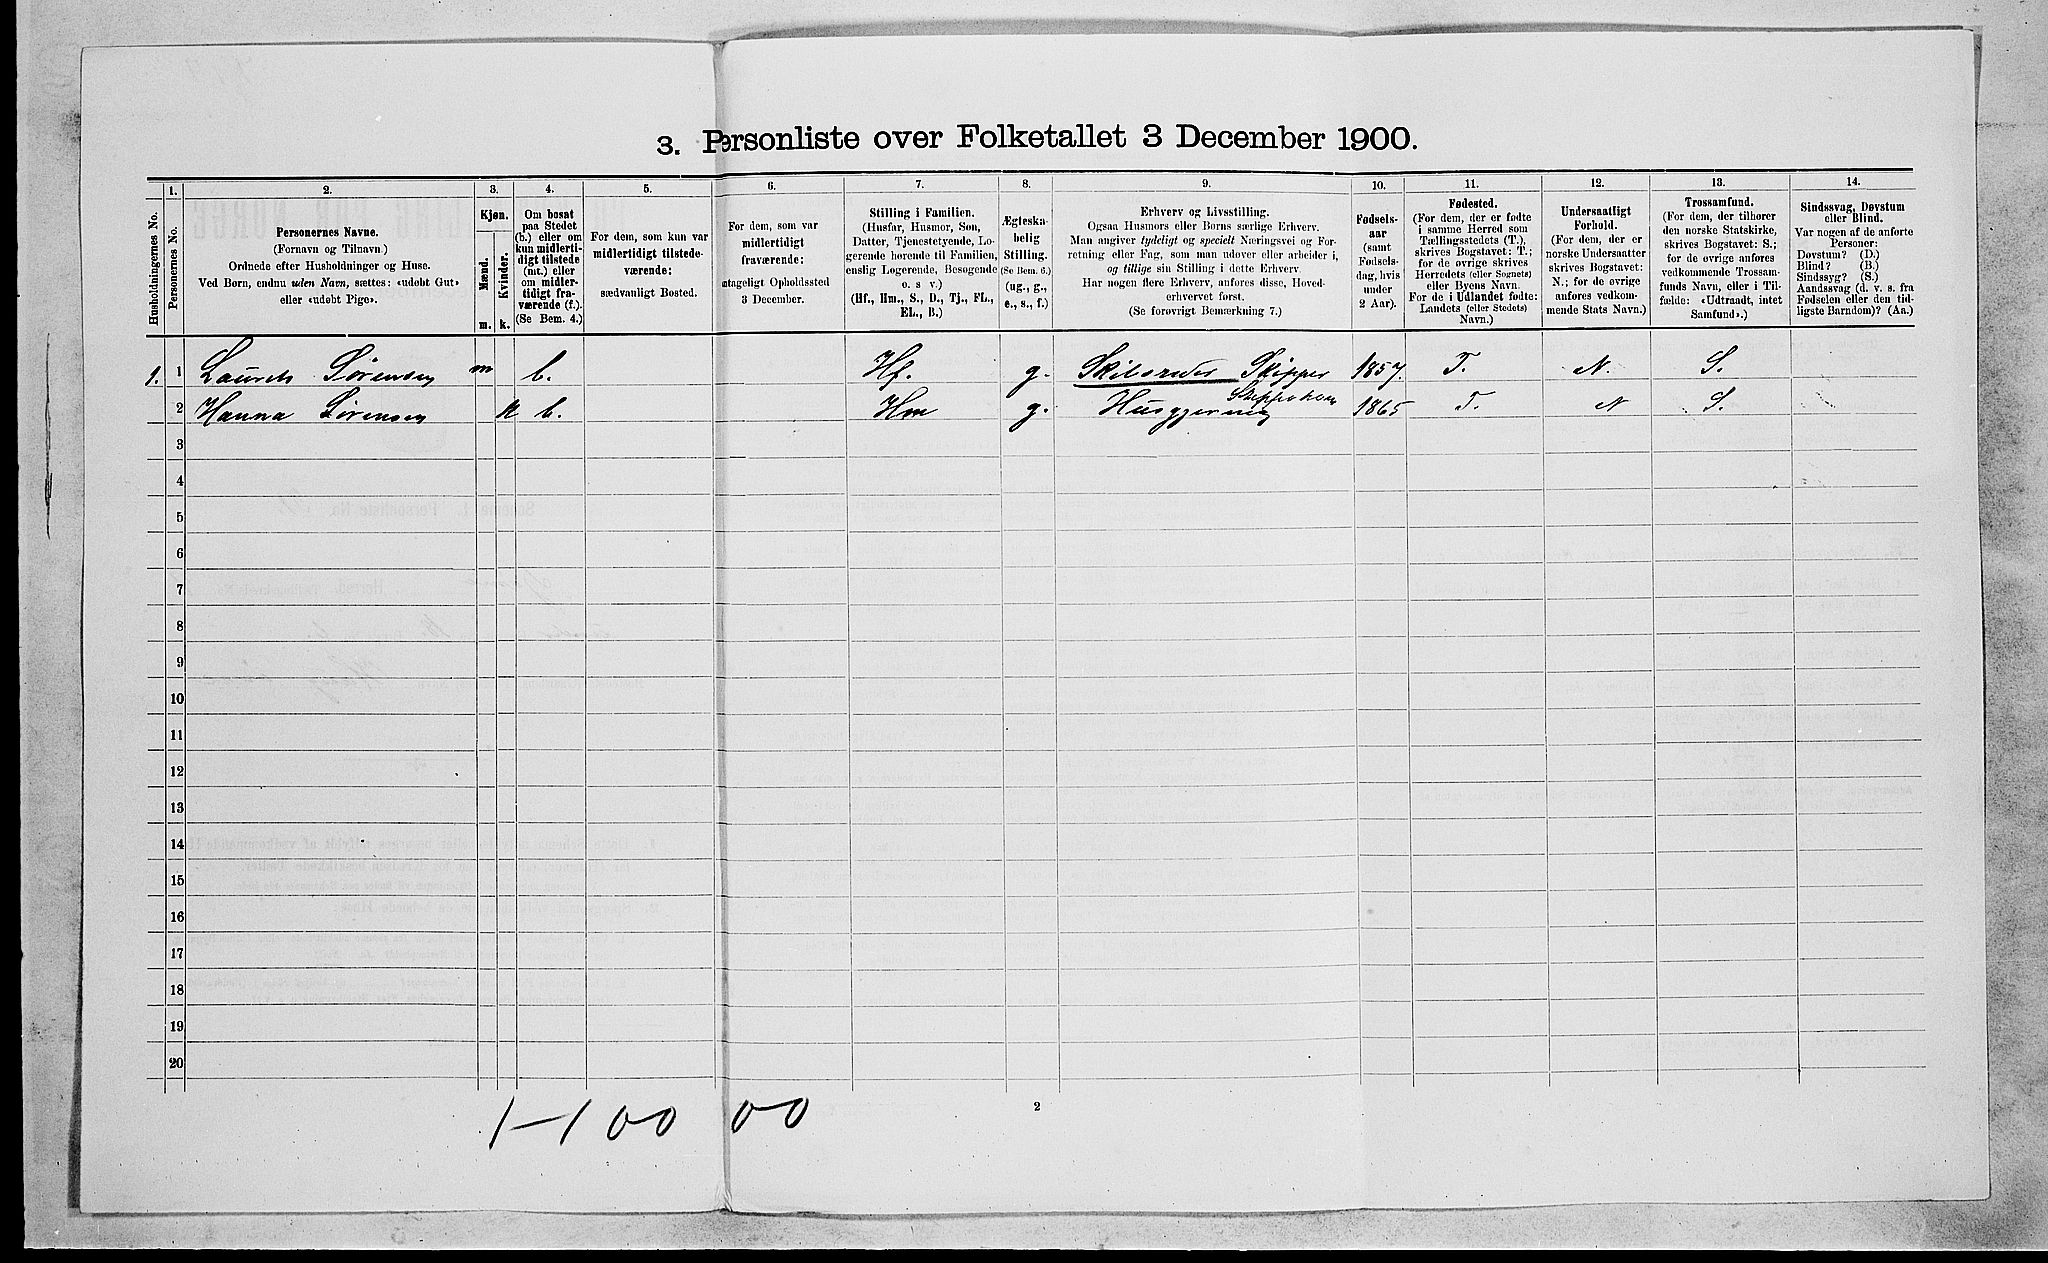 3. Personliste over Folketallet 3 December 1900.
1. 2. 3. 4. 5. 6. 7. 8. 9. 10. 11. 12. 13. 14.
Husholdningernes No.
Personernes No.
Personernes Navne.
(Fornavn og Tilnavn.)
Ordnede efter Husholdninger og Huse.
Ved Børn, endnu uden Navn, sættes: «udøbt Gut»
eller «udøbt Pige».
Kjøn.
Mænd.
Kvinder.
m. k.
Om bosat
paa Stedet
(b.) eller om
kun midlerti-
digt tilstede
(mt.) eller
om midler-
tidigt fra-
værende (f.).
(Se Bem. 4.)
For dem, som kun var
midlertidigt tilstede-
værende:
sædvanligt Bosted.
For dem, som var
midlertidigt
fraværende:
antageligt Opholdssted
3 December.
Stilling i Familien.
(Husfar, Husmor, Søn,
Datter, Tjenestetyende, Lo-
gerende hørende til Familien,
enslig Logerende, Besøgende
o. s. v.)
(Hf., Hm., S., D., Tj., FL.,
EL., B.)
Ægteska-
belig
Stilling.
(Se Bem. 6.)
(ug., g.,
e., s., f.)
Erhverv og Livsstilling.
Ogsaa Husmors eller Børns særlige Erhverv.
Man angiver tydeligt og specielt Næringsvei og For-
retning eller Fag, som man udøver eller arbeider i,
og tillige sin Stilling i dette Erhverv.
Har nogen flere Erhverv, anføres disse, Hoved-
erhvervet først.
(Se forøvrigt Bemærkning 7.)
Fødsels-
aar
(samt
Fødsels-
dag, hvis
under
2 Aar).
Fødested.
(For dem, der er fødte
i samme Herred som
Tællingsstedets (T.),
skrives Bogstavet: T.;
for de øvrige skrives
Herredets (eller Sognets)
eller Byens Navn.
For de i Udlandet fødte:
Landets (eller Stedets)
Navn.)
Undersaatligt
Forhold.
(For dem, der er
norske Undersaatter
skrives Bogstavet:
N.; for de øvrige
anføres vedkom-
mende Stats Navn.)
Trossamfund.
(For dem, der tilhører
den norske Statskirke,
skrives Bogstavet: S.;
for de øvrige anføres
vedkommende Trossam-
funds Navn, eller i Til-
fælde: «Udtraadt, intet
Samfund».)
Sindssvag, Døvstum
eller Blind.
Var nogen af de anførte
Personer:
Døvstum? (D.)
Blind? (B.)
Sindssyg? (S.)
Aandssvag (d. v. s. fra
Fødselen eller den tid-
ligste Barndom)? (Aa.)
1. 1 Laurits Sørensen m b. Hf. g. Skibsreder Skipper 1857. T. N. S.
2 Hanna Sørensen k b. Hm g. Husgjerning 1865 T. N S.
3
4
5
6
7
8
9
10
11
12
13
14
15
16
17
18
19
20
1-1 00 00
2